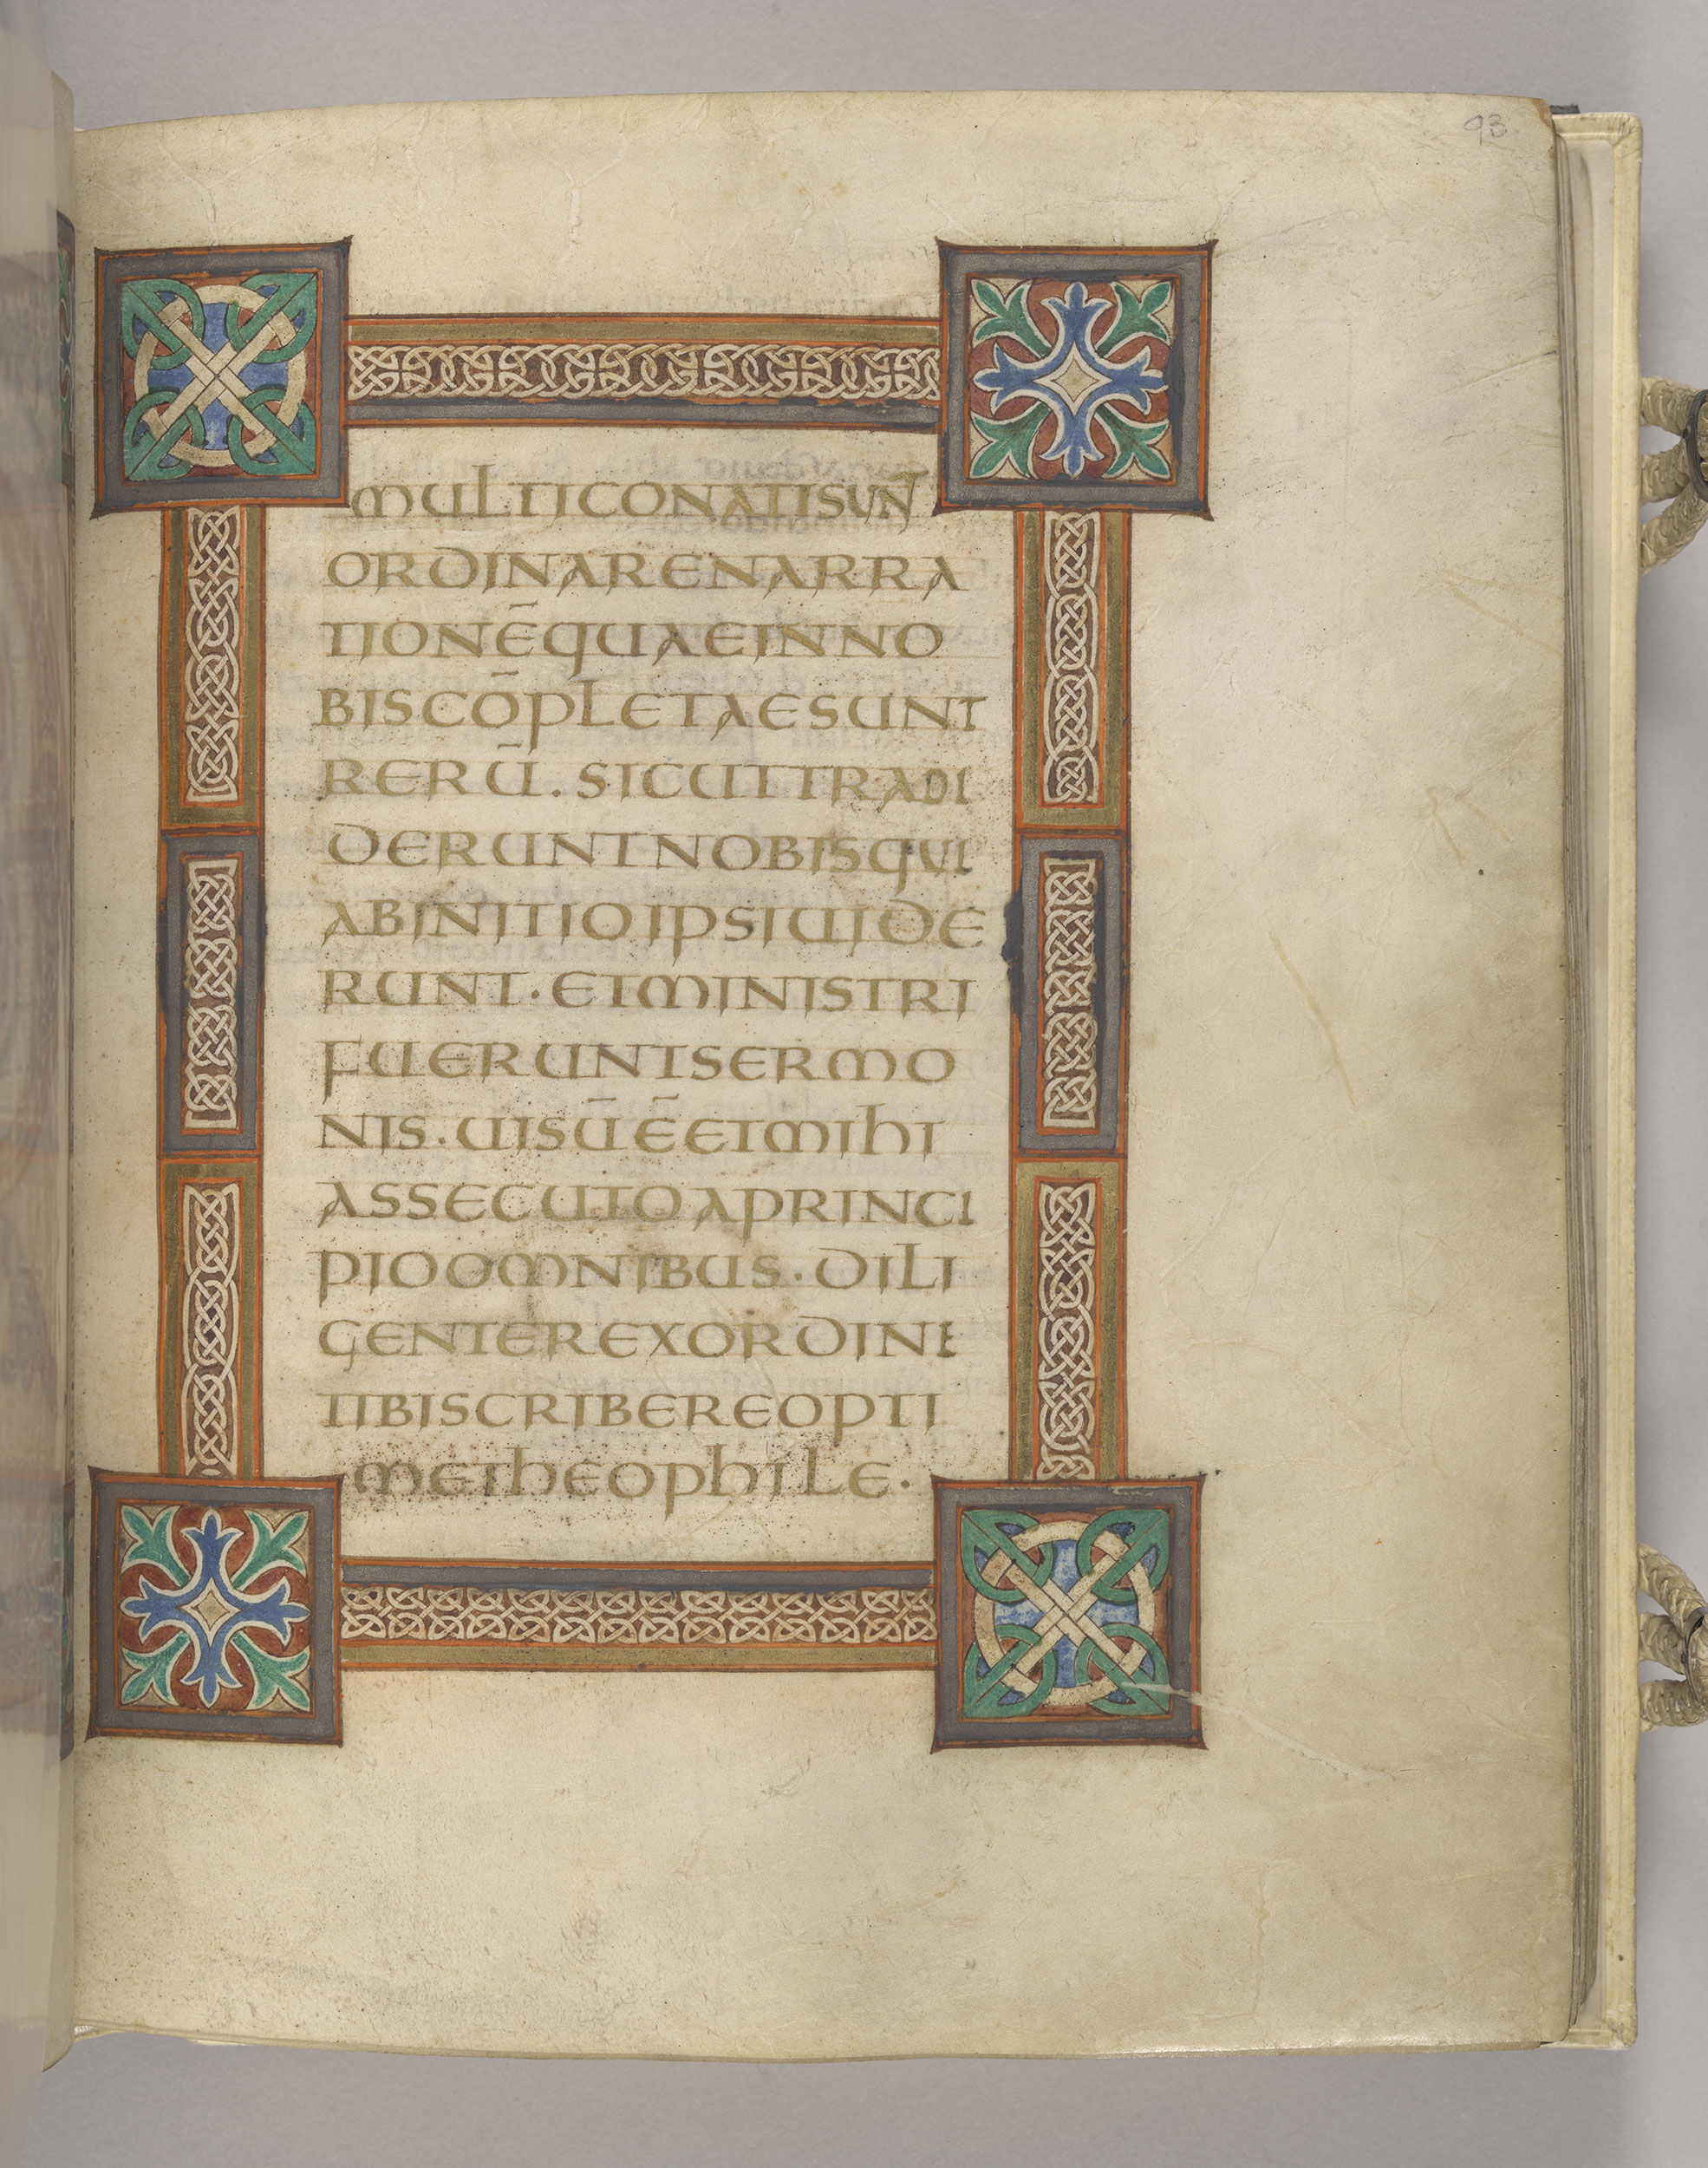 93
MULTICONATISUNT̄
ORDINARENARRA
TIONĒQUAEINNO
BISCŌPLETAESUNT
RERŪ. SICUTTRADI
DERUNTNOBISQUI
ABINITIOIPSIUIDE
RUNT·ETMINISTRI
FUERUNTSERMO
NIS·UISŪĒETMIHI
ASSECUTOAPRINCI
PIOOMNIBUS·DILI
GENTEREXORDINE
TIBISCRIBEREOPTI
METHEOPHILE·